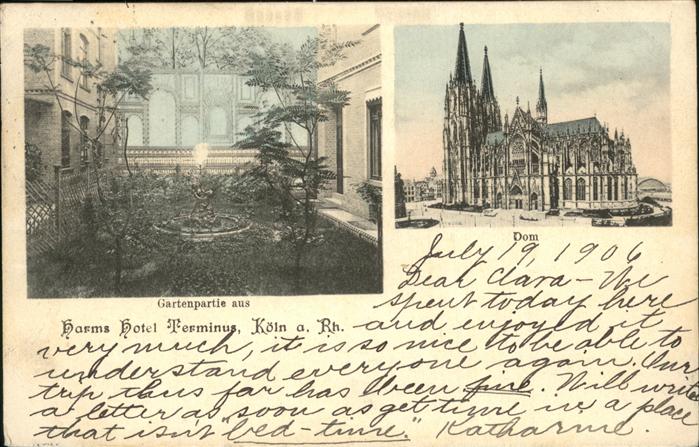 Gartenpartie aus
Harms Hotel Terminus, Köln a. Rh.
Dom
July 19, 1906
Dear Clara - We
spent today here
and enjoyed it
very much, it is so nice to be able to
understand everyone again. Our
trip thus far has been fine. Will write
a letter as soon as get time in a place
that isn't "bed-time." Katharine.